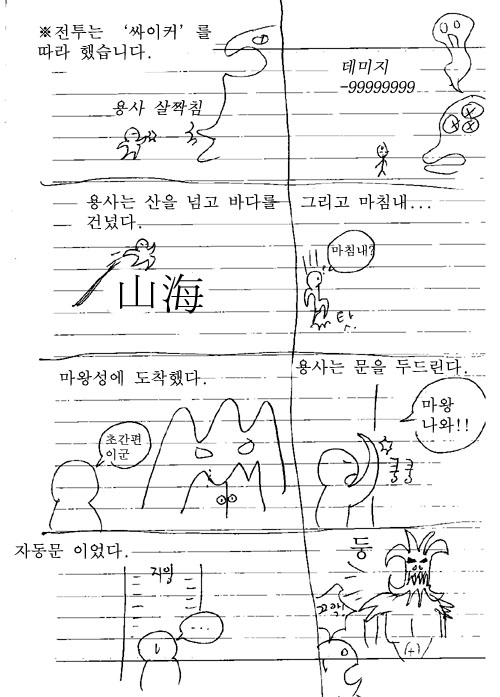 ※전투는 '싸이커'를
따라 했습니다.
용사 살짝침
데미지
-99999999
용사는 산을 넘고 바다를
건넜다.
山海
그리고 마침내...
마침내?
탁
마왕성에 도착했다.
초간편
이군
용사는 문을 두드린다.
마왕
나와!!
쿵
쿵
자동문 이었다.
지잉
...
둥
끄악!